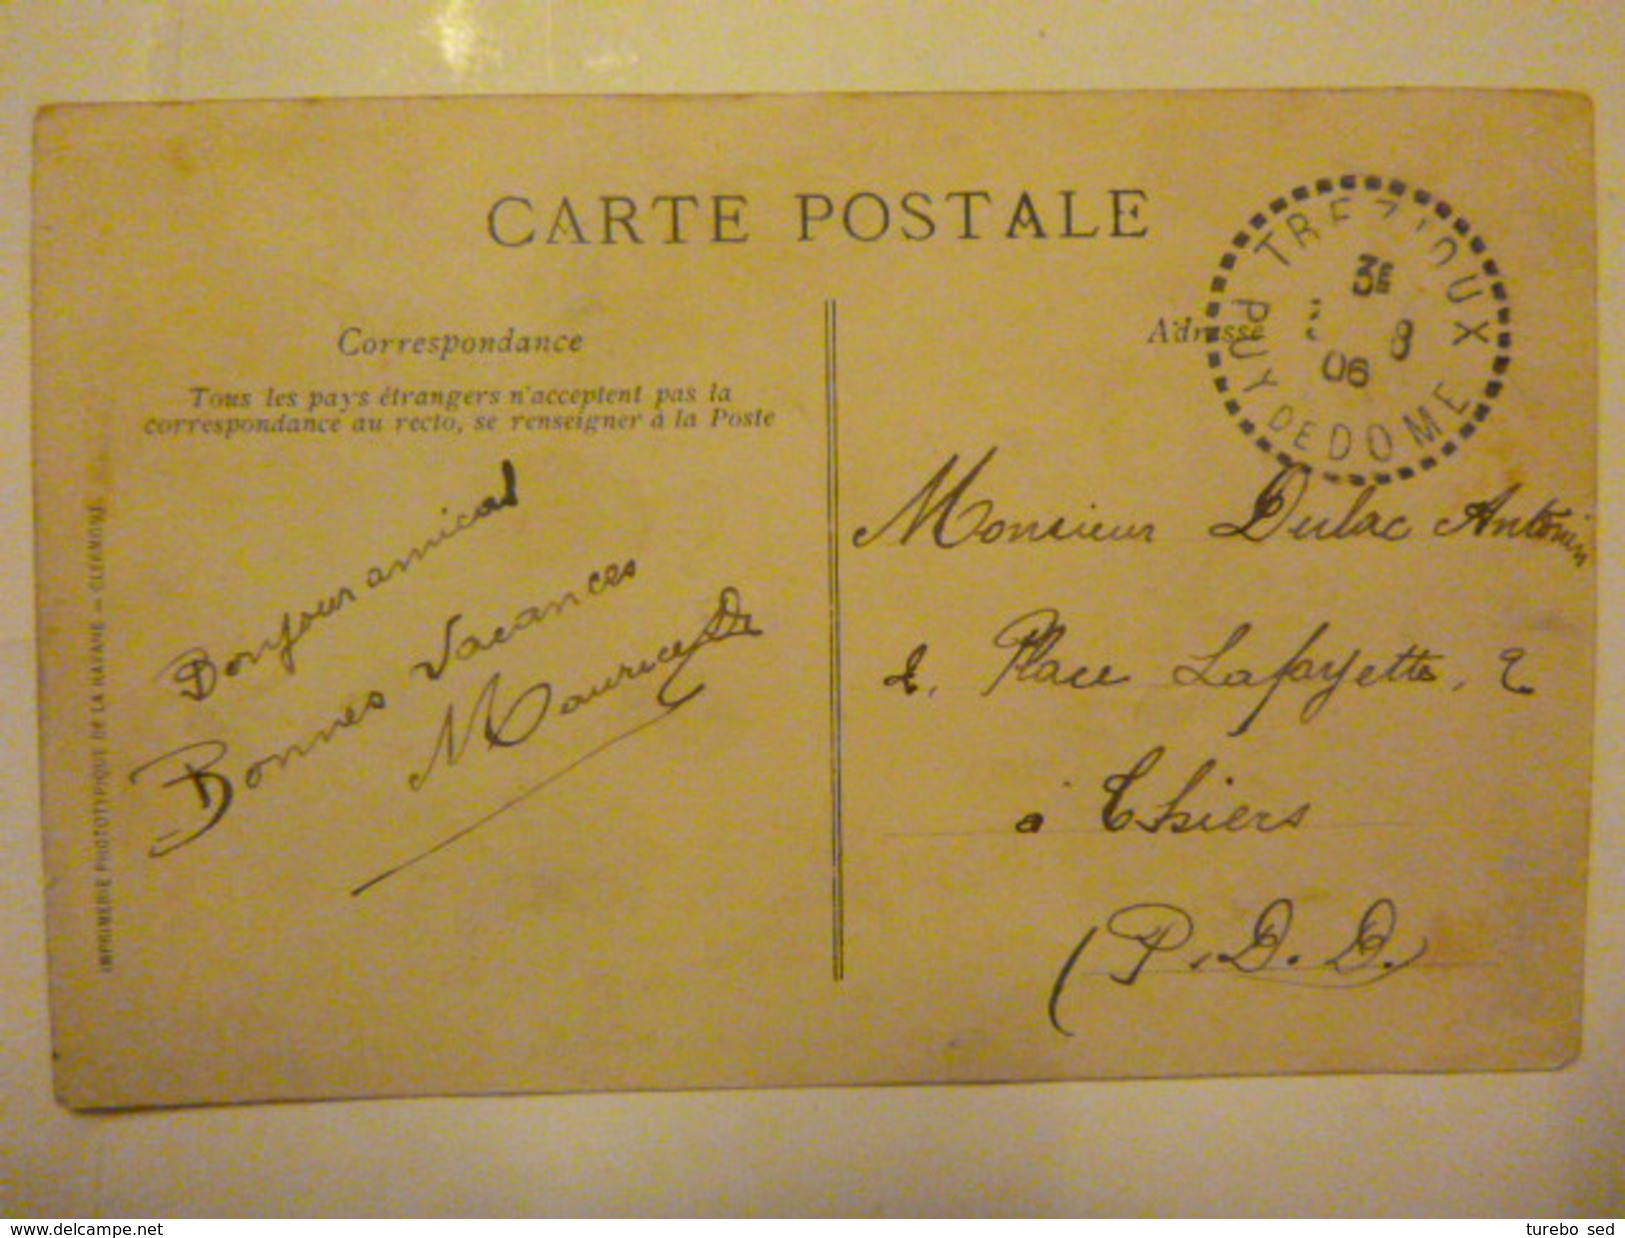 CARTE POSTALE
Correspondance
Tous les pays étrangers n'acceptent pas la
correspondance au recto, se renseigner à la Poste
Bonjour amical
Bonnes Vacances
Maurice
IMPRIMERIE PHOTOTYPIQUE DE LA HAVANE — CLERMONT
Adresse
TREZIOUX
3E
8
06
PUY DE DOME
Monsieur Dulac Antonin
2, Place Lafayette, 2
à Thiers
(P.D.D.)
www.delcampe.net
turebo sed